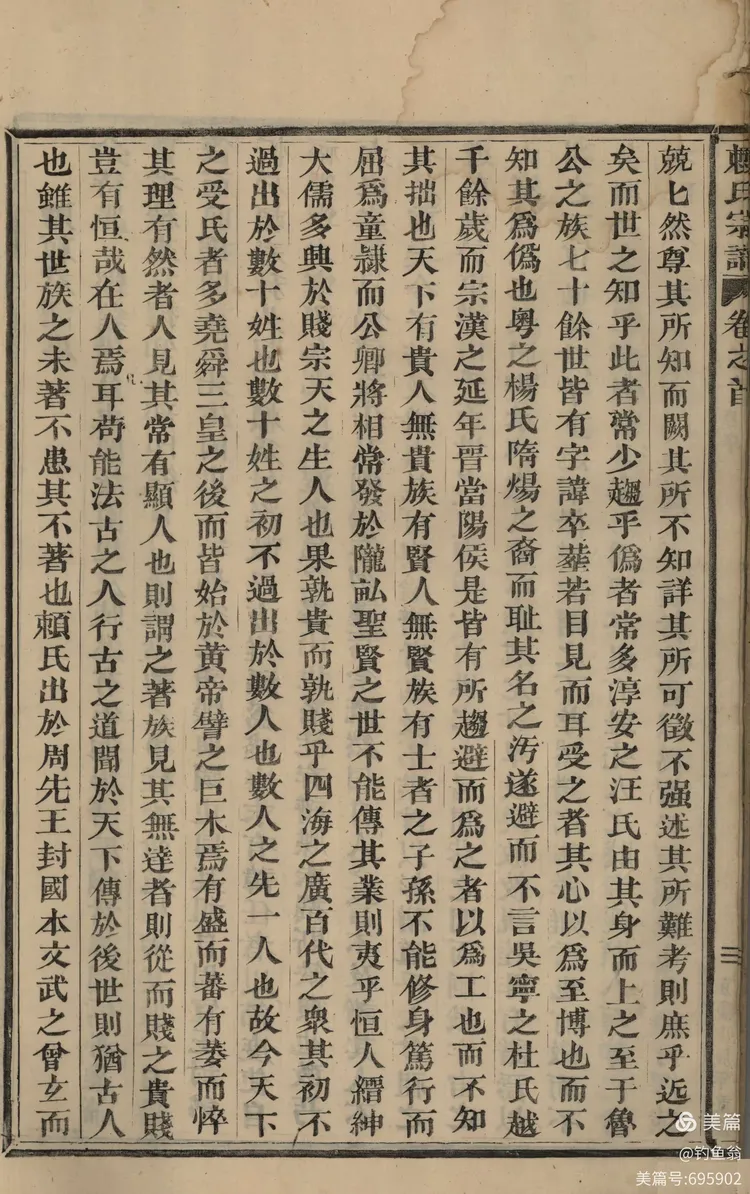 賴氏宗譜 卷之首 三
兢匕然尊其所知而闕其所不知詳其所可徵不强述其所難考則庶乎近之
矣而世之知乎此者常少趨乎僞者常多淳安之汪氏由其身而上之至于魯
公之族七十餘世皆有字諱卒葬若目見而耳受之者其心以爲至博也而不
知其爲僞也粤之楊氏隋煬之裔而耻其名之汚遂避而不言吳寧之杜氏越
千餘歲而宗漢之延年晉當陽侯是皆有所趨避而爲之者以爲工也而不知
其拙也天下有貴人無貴族有賢人無賢族有士者之子孫不能修身篤行而
屈爲童隸而公卿將相常發於隴畝聖賢之世不能傳其業則夷乎恒人縉紳
大儒多興於賤宗天之生人也果孰貴而孰賤乎四海之廣百代之衆其初不
過出於數十姓也數十姓之初不過出於數人也數人之先一人也故今天下
之受氏者多堯舜三皇之後而皆始於黄帝譬之巨木焉有盛而蕃有萎而悴
其理有然者人見其常有顯人也則謂之著族見其無達者則從而賤之貴賤
豈有恒哉在人焉耳苟能法古之人行古之道聞於天下傳於後世則猶古人
也雖其世族之未著不患其不著也賴氏出於周先王封國本文武之曾玄而
美篇
@钓鱼翁
美篇号:695902